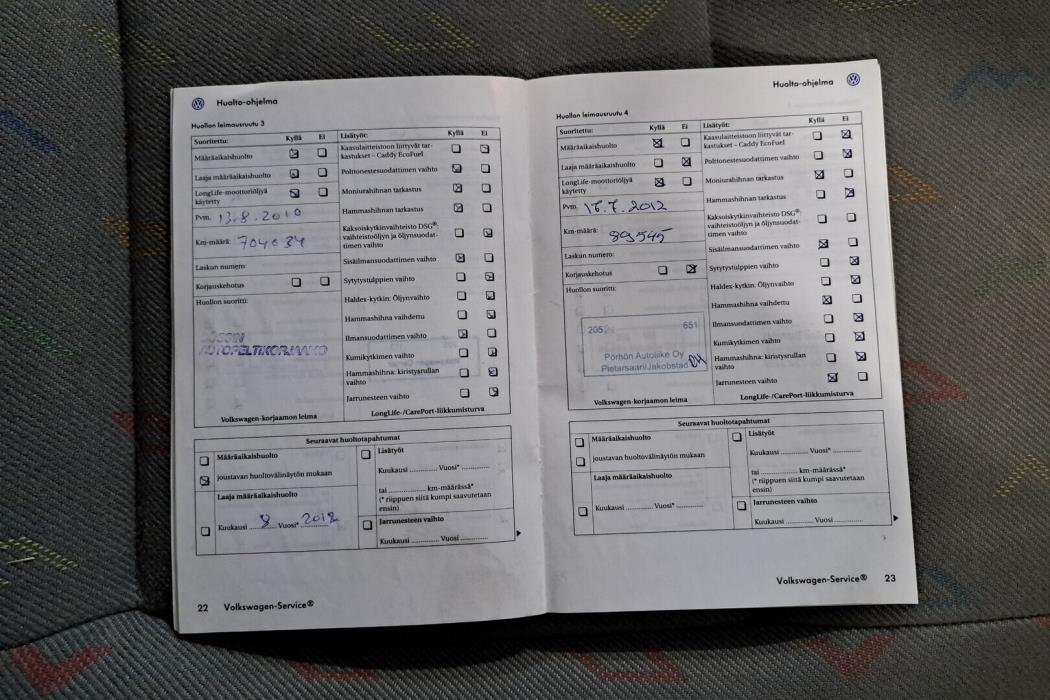 Huolto-ohjelma
Huollon leimausruutu 3
Suoritettu: Kyllä Ei
Määräaikaishuolto
Laaja määräaikaishuolto
LongLife-moottoriöljyä
käytetty
Pvm. 13.8.2010
Km-määrä:
Laskun numero:
Korjauskehotus
Huollon suoritti:
AUTOPELTIKORJAAMO
Volkswagen-korjaamon leima
Lisätyöt: Kyllä Ei
Kaasulaitteistoon liittyvät tar-
kastukset – Caddy EcoFuel
Polttonestesuodattimen vaihto
Moniurahihnan tarkastus
Hammashihnan tarkastus
Kaksoiskytkinvaihteisto DSG®:
vaihteistoöljyn ja öljynsuodat-
timen vaihto
Sisäilmansuodattimen vaihto
Sytytystulppien vaihto
Haldex-kytkin: Öljynvaihto
Hammashihna vaihdettu
Ilmansuodattimen vaihto
Kumikytkimen vaihto
Hammashihna: kiristysrullan
vaihto
Jarrunesteen vaihto
LongLife-/CarePort-liikkumisturva
Seuraavat huoltotapahtumat
Määräaikaishuolto
joustavan huoltovälinäytön mukaan
Laaja määräaikaishuolto
Kuukausi 8 Vuosi* 2012
Lisätyöt
Kuukausi ............ Vuosi* ............
tai ................ km-määrässä*
(* riippuen siitä kumpi saavutetaan
ensin)
Jarrunesteen vaihto
Kuukausi ............ Vuosi ............
22 Volkswagen-Service®
Huolto-ohjelma
Huollon leimausruutu 4
Suoritettu: Kyllä Ei
Määräaikaishuolto
Laaja määräaikaishuolto
LongLife-moottoriöljyä
käytetty
Pvm. 17.7.2012
Km-määrä: 89545
Laskun numero:
Korjauskehotus
Huollon suoritti:
205 651
Pörhön Autoliike Oy
Pietarsaari/Jakobstad
Volkswagen-korjaamon leima
Lisätyöt: Kyllä Ei
Kaasulaitteistoon liittyvät tar-
kastukset – Caddy EcoFuel
Polttonestesuodattimen vaihto
Moniurahihnan tarkastus
Hammashihnan tarkastus
Kaksoiskytkinvaihteisto DSG®:
vaihteistoöljyn ja öljynsuodat-
timen vaihto
Sisäilmansuodattimen vaihto
Sytytystulppien vaihto
Haldex-kytkin: Öljynvaihto
Hammashihna vaihdettu
Ilmansuodattimen vaihto
Kumikytkimen vaihto
Hammashihna: kiristysrullan
vaihto
Jarrunesteen vaihto
LongLife-/CarePort-liikkumisturva
Seuraavat huoltotapahtumat
Määräaikaishuolto
joustavan huoltovälinäytön mukaan
Laaja määräaikaishuolto
Kuukausi ............ Vuosi* ............
Lisätyöt
Kuukausi ............ Vuosi* ............
tai ................ km-määrässä*
(* riippuen siitä kumpi saavutetaan
ensin)
Jarrunesteen vaihto
Kuukausi ............ Vuosi ............
Volkswagen-Service® 23